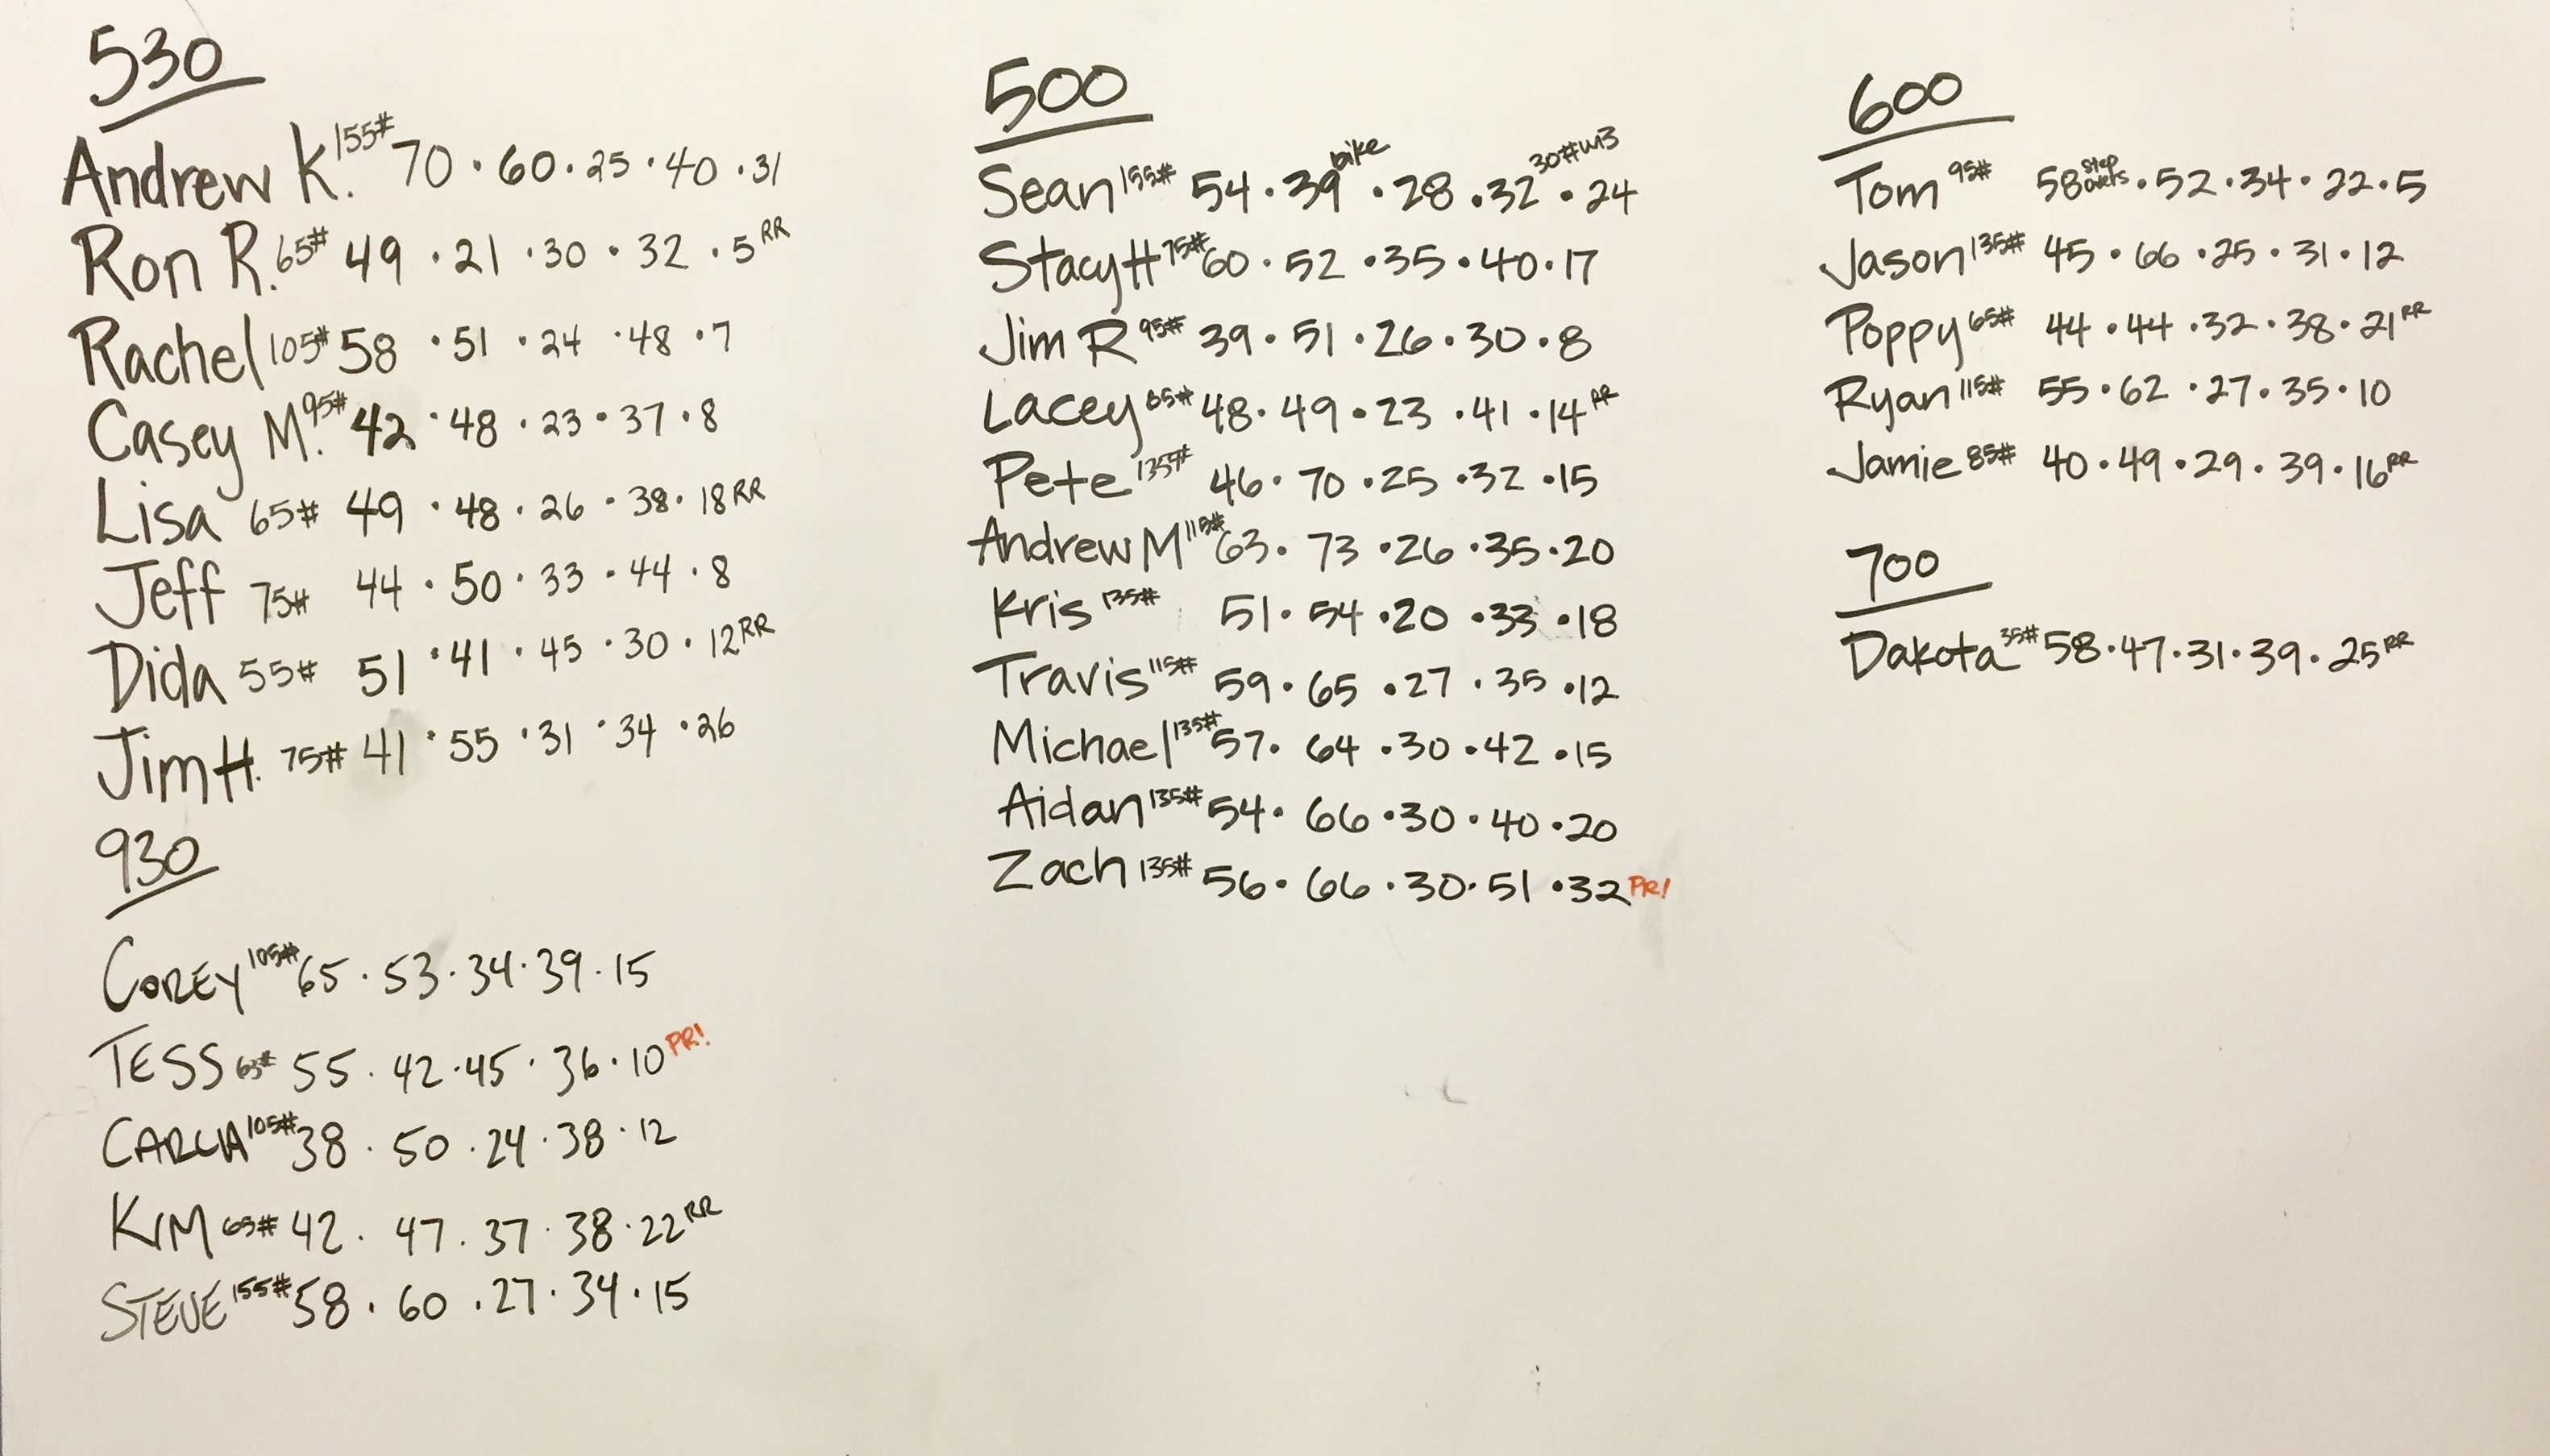 530
Andrew K. 155# 70 · 60 · 25 · 40 · 31
Ron R. 65# 49 · 21 · 30 · 32 · 5 RR
Rachel 105# 58 · 51 · 24 · 48 · 7
Casey M. 95# 42 · 48 · 23 · 37 · 8
Lisa 65# 49 · 48 · 26 · 38 · 18 RR
Jeff 75# 44 · 50 · 33 · 44 · 8
Dida 55# 51 · 41 · 45 · 30 · 12 RR
Jim H. 75# 41 · 55 · 31 · 34 · 26
930
COREY 105# 65 · 53 · 34 · 39 · 15
TESS 63# 55 · 42 · 45 · 36 · 10 PR!
CARLIA 105# 38 · 50 · 24 · 38 · 12
KIM 63# 42 · 47 · 37 · 38 · 22 RR
STEVE 155# 58 · 60 · 27 · 34 · 15
500
Sean 155# 54 · 39 bike · 28 · 32 30# · 24
Stacy H 75# 60 · 52 · 35 · 40 · 17
Jim R 95# 39 · 51 · 26 · 30 · 8
Lacey 65# 48 · 49 · 23 · 41 · 14 RR
Pete 135# 46 · 70 · 25 · 32 · 15
Andrew M 115# 63 · 73 · 26 · 35 · 20
Kris 135# 51 · 54 · 20 · 33 · 18
Travis 115# 59 · 65 · 27 · 35 · 12
Michael 135# 57 · 64 · 30 · 42 · 15
Aidan 135# 54 · 66 · 30 · 40 · 20
Zach 135# 56 · 66 · 30 · 51 · 32 PR!
600
Tom 95# 58 step overs · 52 · 34 · 22 · 5
Jason 135# 45 · 66 · 25 · 31 · 12
Poppy 65# 44 · 44 · 32 · 38 · 21 RR
Ryan 115# 55 · 62 · 27 · 35 · 10
Jamie 85# 40 · 49 · 29 · 39 · 16 RR
700
Dakota 35# 58 · 47 · 31 · 39 · 25 RR